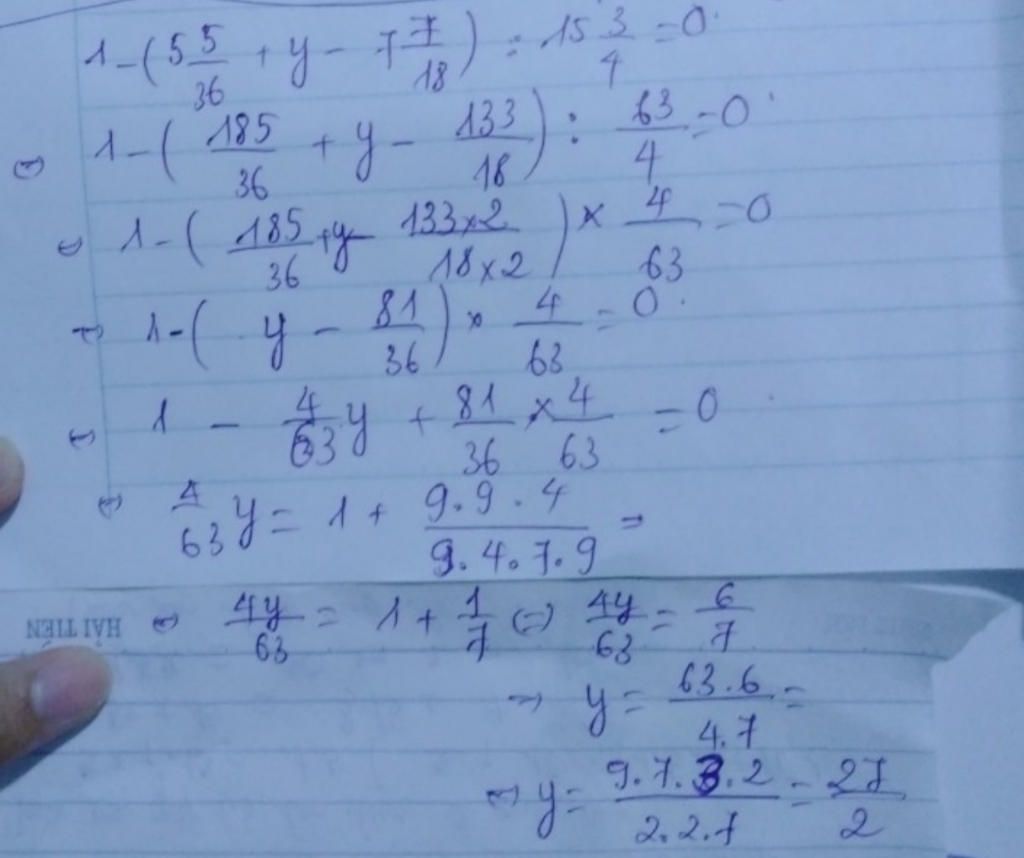 1 - ( 5 5/36 + y - 7 7/18 ) : 15 3/4 = 0
⇔ 1 - ( 185/36 + y - 133/18 ) : 63/4 = 0
⇔ 1 - ( 185/36 + y - 133×2/18×2 ) × 4/63 = 0
⇔ 1 - ( y - 81/36 ) × 4/63 = 0
⇔ 1 - 4/63 y + 81/36 × 4/63 = 0
⇔ 4/63 y = 1 + 9.9.4/9.4.7.9 =
HẢI TIẾN ⇔ 4y/63 = 1 + 1/7 ⇔ 4y/63 = 6/7
⇒ y = 63.6/4.7 =
⇔ y = 9.7.3.2/2.2.7 = 27/2